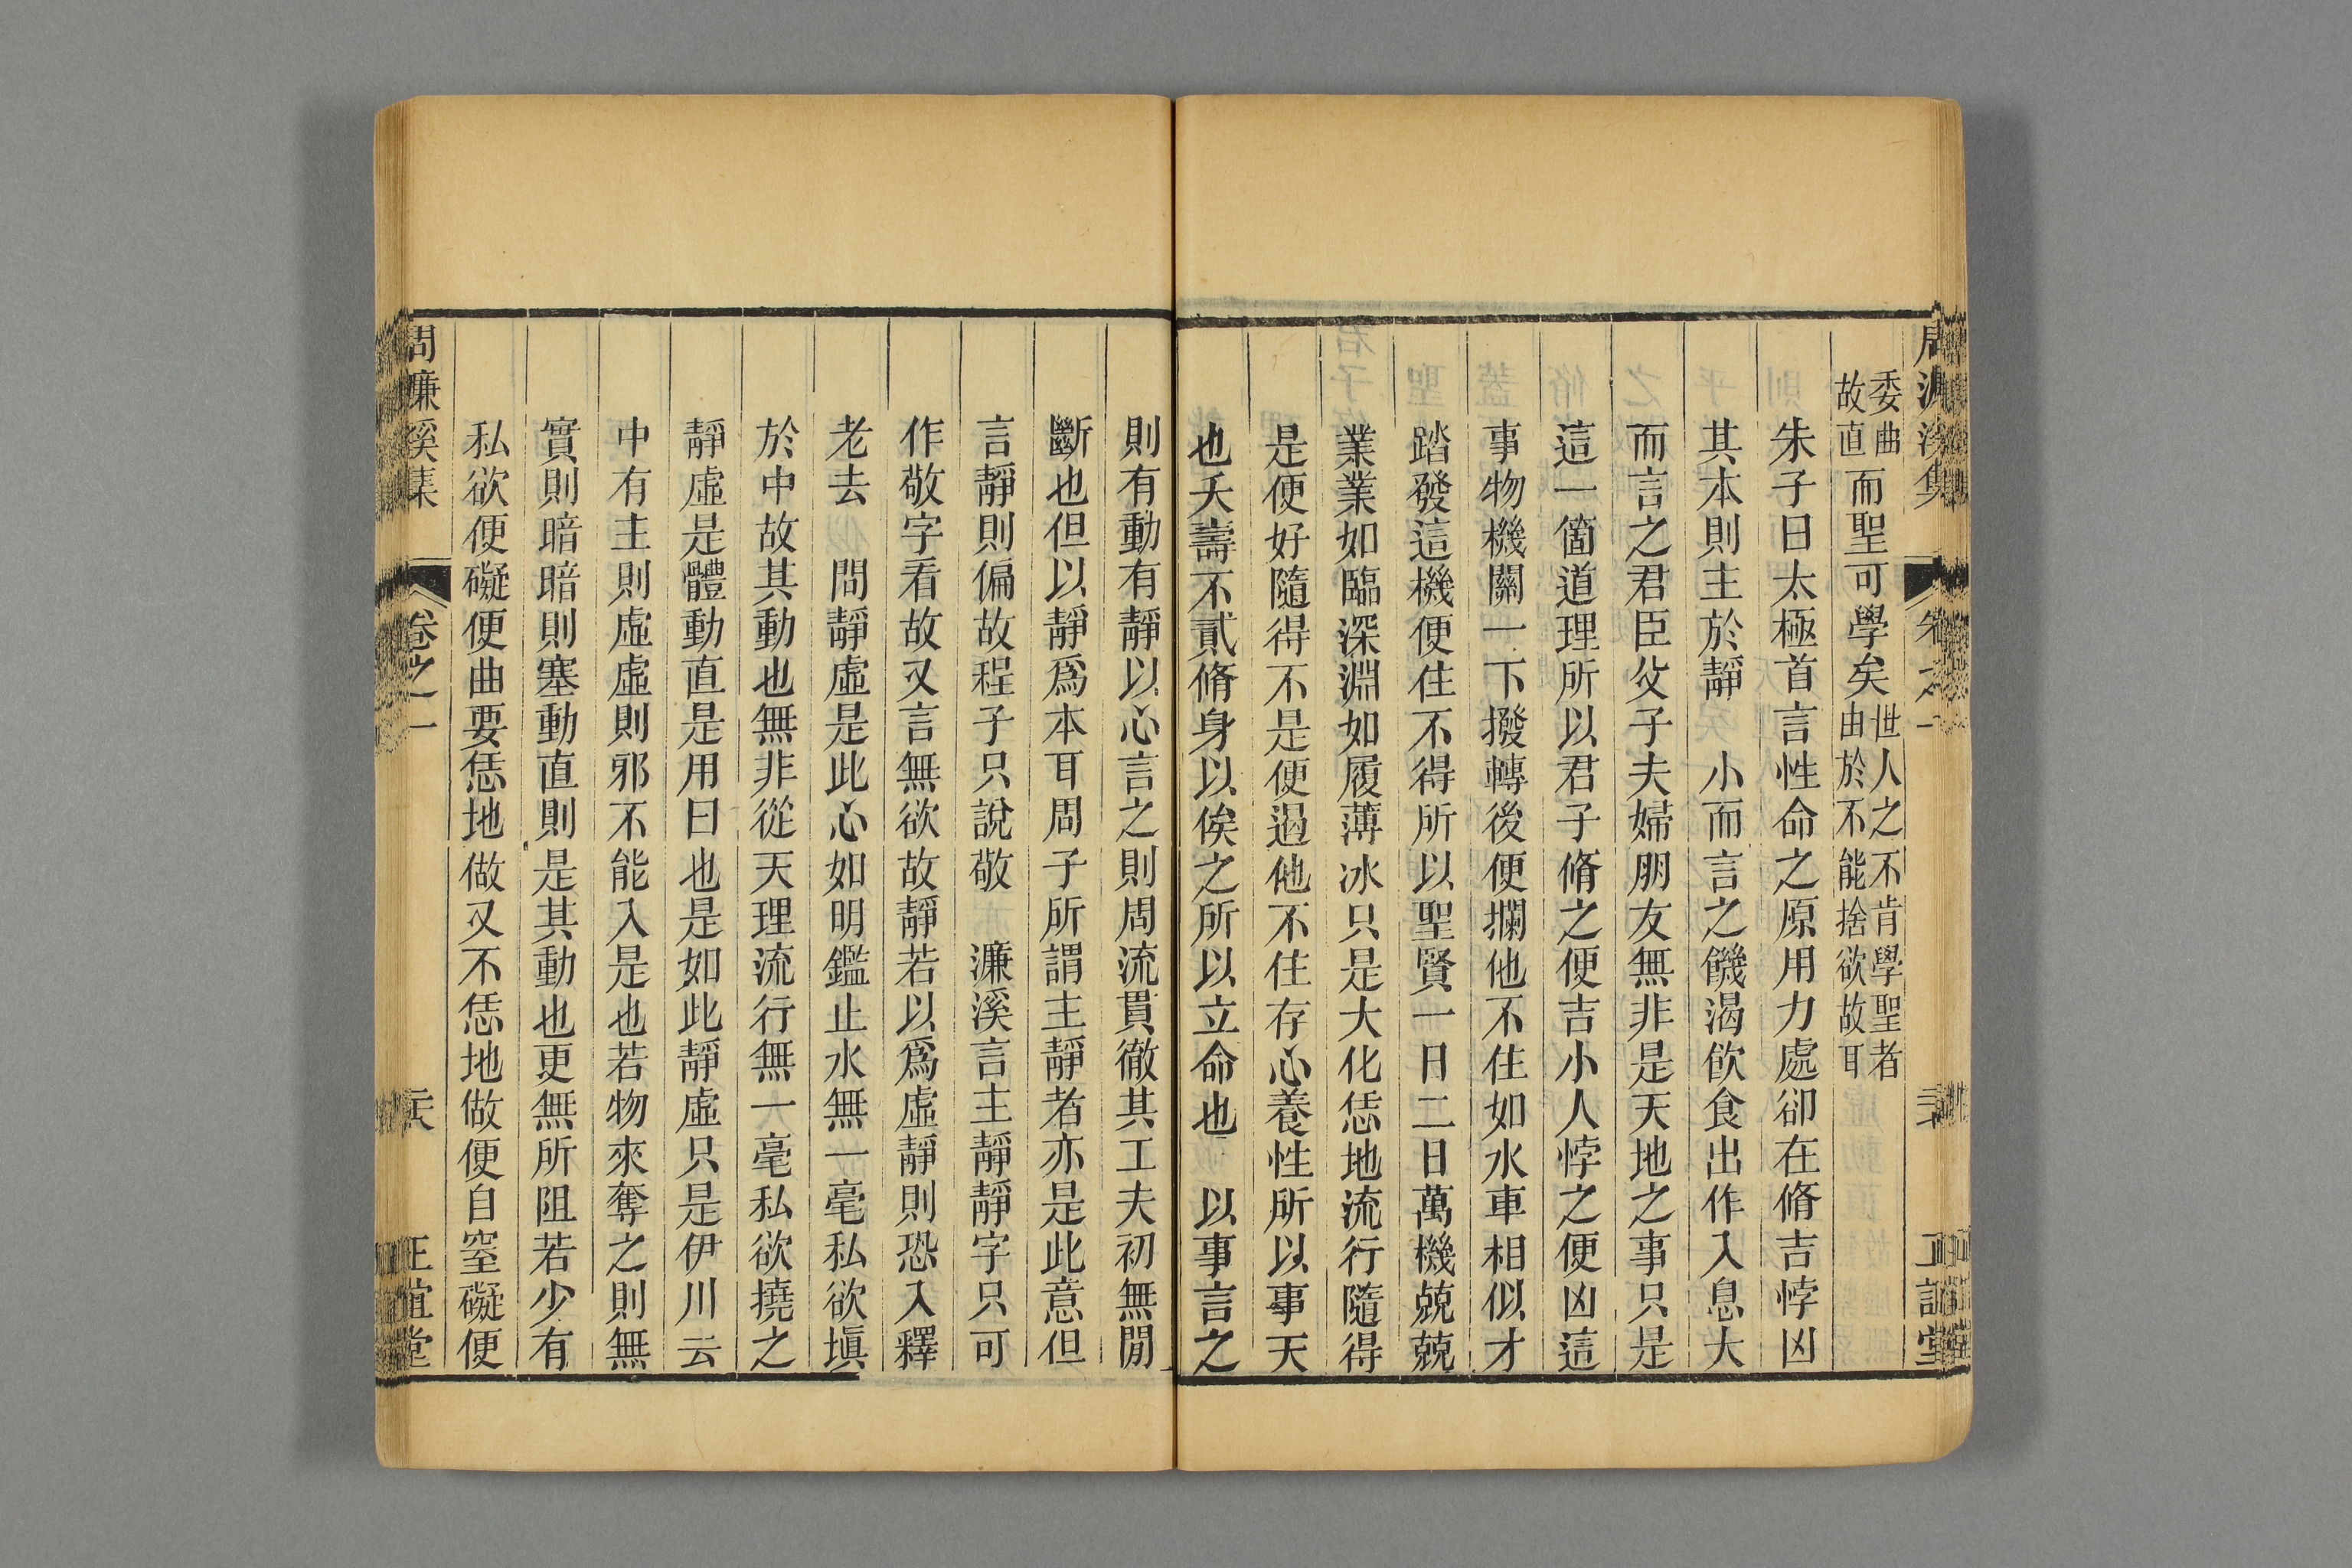 委曲
故直
而聖可學矣
世人之不肯學聖者
由於不能捨欲故耳
朱子曰太極首言性命之原用力處卻在脩吉悖凶
其本則主於靜　小而言之饑渴飮食出作入息大
而言之君臣父子夫婦朋友無非是天地之事只是
這一箇道理所以君子脩之便吉小人悖之便凶這
事物機關一下撥轉後便攔他不住如水車相似才
踏發這機便住不得所以聖賢一日二日萬機兢兢
業業如臨深淵如履薄冰只是大化恁地流行隨得
是便好隨得不是便過他不住存心養性所以事天
也夭壽不貳脩身以俟之所以立命也　以事言之
則有動有靜以心言之則周流貫徹其工夫初無閒
斷也但以靜爲本耳周子所謂主靜者亦是此意但
言靜則偏故程子只說敬　濂溪言主靜靜字只可
作敬字看故又言無欲故靜若以爲虛靜則恐入釋
老去　問靜虛是此心如明鑑止水無一毫私欲塡
於中故其動也無非從天理流行無一毫私欲撓之
靜虛是體動直是用曰也是如此靜虛只是伊川云
中有主則虛虛則邪不能入是也若物來奪之則無
實則暗暗則塞動直則是其動也更無所阻若少有
私欲便礙便曲要恁地做又不恁地做便自窒礙便
周濂溪集　卷之一　正誼堂